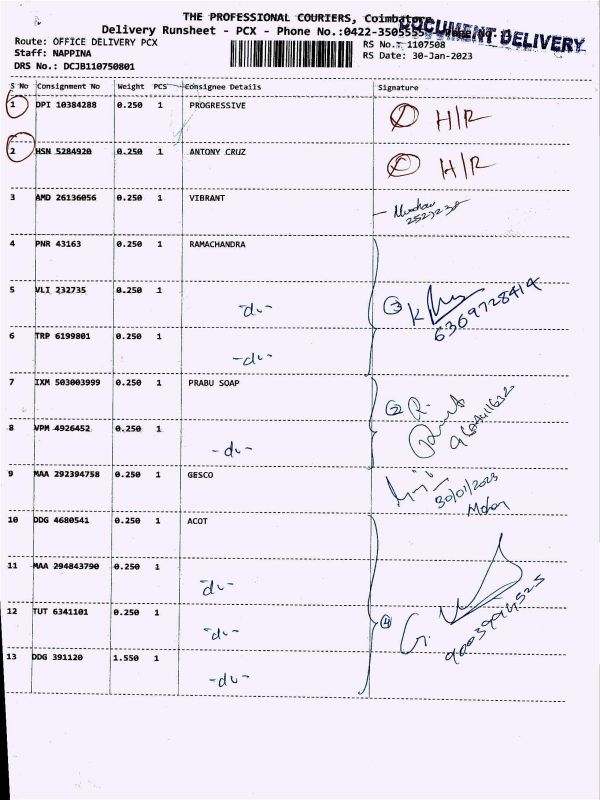 THE PROFESSIONAL COURIERS, Coimbatore
DOCUMENT DELIVERY
Delivery Runsheet - PCX - Phone No.:0422-3505555
Route: OFFICE DELIVERY PCX
RS No.: 1107508
Staff: NAPPINA
RS Date: 30-Jan-2023
DRS No.: DCJB110750801
S No Consignment No Weight PCS Consignee Details Signature
1 DPI 10384288 0.250 1 PROGRESSIVE H/R
2 HSN 5284920 0.250 1 ANTONY CRUZ H/R
3 AMD 26136056 0.250 1 VIBRANT
4 PNR 43163 0.250 1 RAMACHANDRA
5 VLI 232735 0.250 1 -du- 3 6369728414
6 TRP 6199801 0.250 1 -du-
7 IXM 503003999 0.250 1 PRABU SOAP 2 R.
8 VPM 4926452 0.250 1 -du-
9 MAA 292394758 0.250 1 GESCO 30/01/2023
10 DDG 4680541 0.250 1 ACOT
11 MAA 294843790 0.250 1 -du-
12 TUT 6341101 0.250 1 -du- 4 G.
13 DDG 391120 1.550 1 -du-